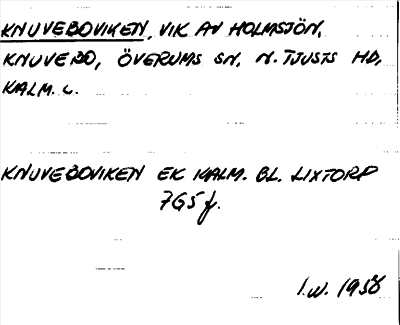 KNUVEBOVIKEN, VIK AV HOLMSJÖN,
KNUVEBO, ÖVERUMS SN, N. TJUSTS HD,
KALM. L.
KNUVEBOVIKEN EK KALM. BL. LIXTORP
7G5f.
I.W. 1958